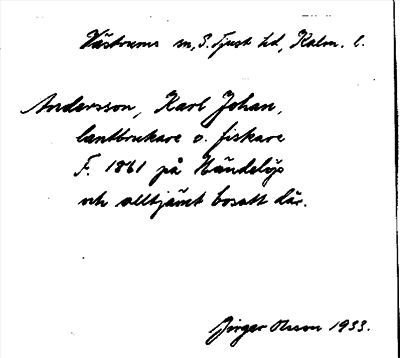 Västrums sn, S. Tjust hd, Kalm. l.
Andersson, Karl Johan,
lantbrukare o. fiskare
F. 1861 på Händelöp
och alltjämt bosatt där.
Birger Olsson 1933.